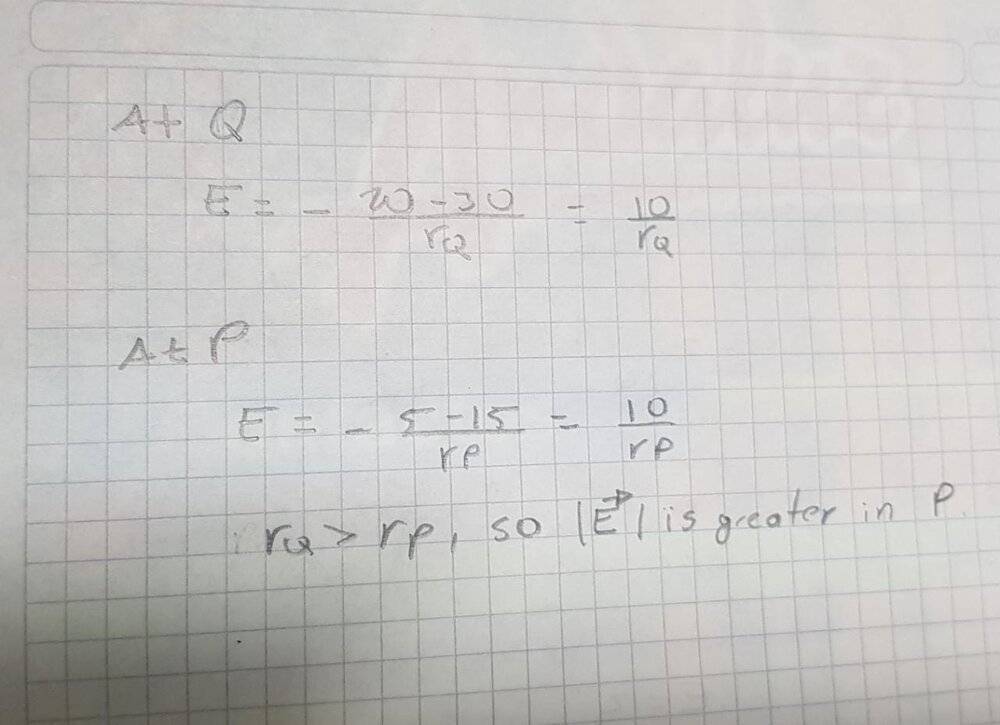 At Q
E = - 20-30/rQ = 10/rQ
At P
E = - 5-15/rP = 10/rP
rQ > rP, so |E⃗| is greater in P.